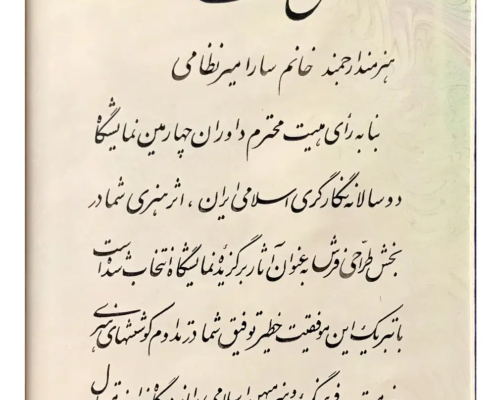 هنرمند ارجمند خانم سارا میرنظامی
بنا به رأی هیئت محترم داوران چهارمین نمایشگاه
دوسالانه نگارگری اسلامی ایران ، اثر هنری شما در
بخش طراحی فرش به عنوان آثار برگزیده نمایشگاه انتخاب شده است
با تبریک این موفقیت خطیر توفیق شما در تداوم کوششهای هنری